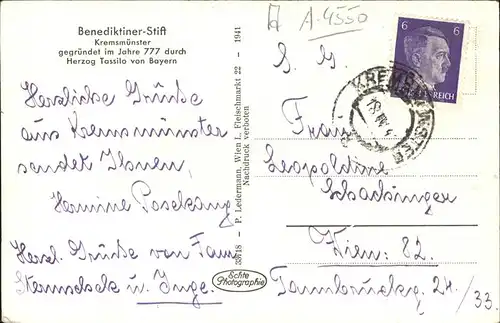 Benediktiner-Stift
Kremsmünster
gegründet im Jahre 777 durch
Herzog Tassilo von Bayern
Herzliche Grüße
aus Kremsmünster
sendet Ihnen,
Hermine
Herzl. Grüße von Fam.
u. Inge.
33618 – P. Ledermann, Wien I., Fleischmarkt 22 – 1941
Nachdruck verboten
Echte
Photographie
A-4550
6 6
REICH
KREMSMÜNSTER
S. G.
Franz
Leopoldine
Schachinger
Wien: 82.
24/33.